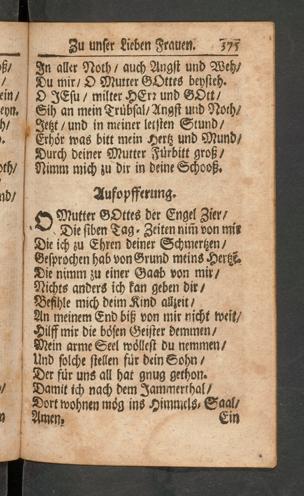 Zu unser Lieben Frauen. 375
In aller Noth/ auch Angst und Weh/
Du mir/ O Mutter GOttes beysteh.
O JEsu/ milter HErr und GOtt/
Sih an mein Trübsal/ Angst und Noth/
Jetzt/ und in meiner letsten Stund/
Erhör was bitt mein Hertz und Mund/
Durch deiner Mutter Fürbitt groß/
Nimm mich zu dir in deine Schooß.
Aufopfferung.
O Mutter GOttes der Engel Zier/
Die siben Tag-Zeiten nim̄ von mir
Die ich zu Ehren deiner Schmertzen/
Gesprochen hab von Grund meins Hertzē.
Die nimm zu einer Gaab von mir/
Nichts anders ich kan geben dir/
Befihle mich deim Kind allzeit/
An meinem End biß von mir nicht weit/
Hilff mir die bösen Geister demmen/
Mein arme Seel wöllest du nemmen/
Und solche stellen für dein Sohn/
Der für uns all hat gnug gethon.
Damit ich nach dem Jammerthal/
Dort wohnen mög ins Himmels-Saal/
Amen. Ein